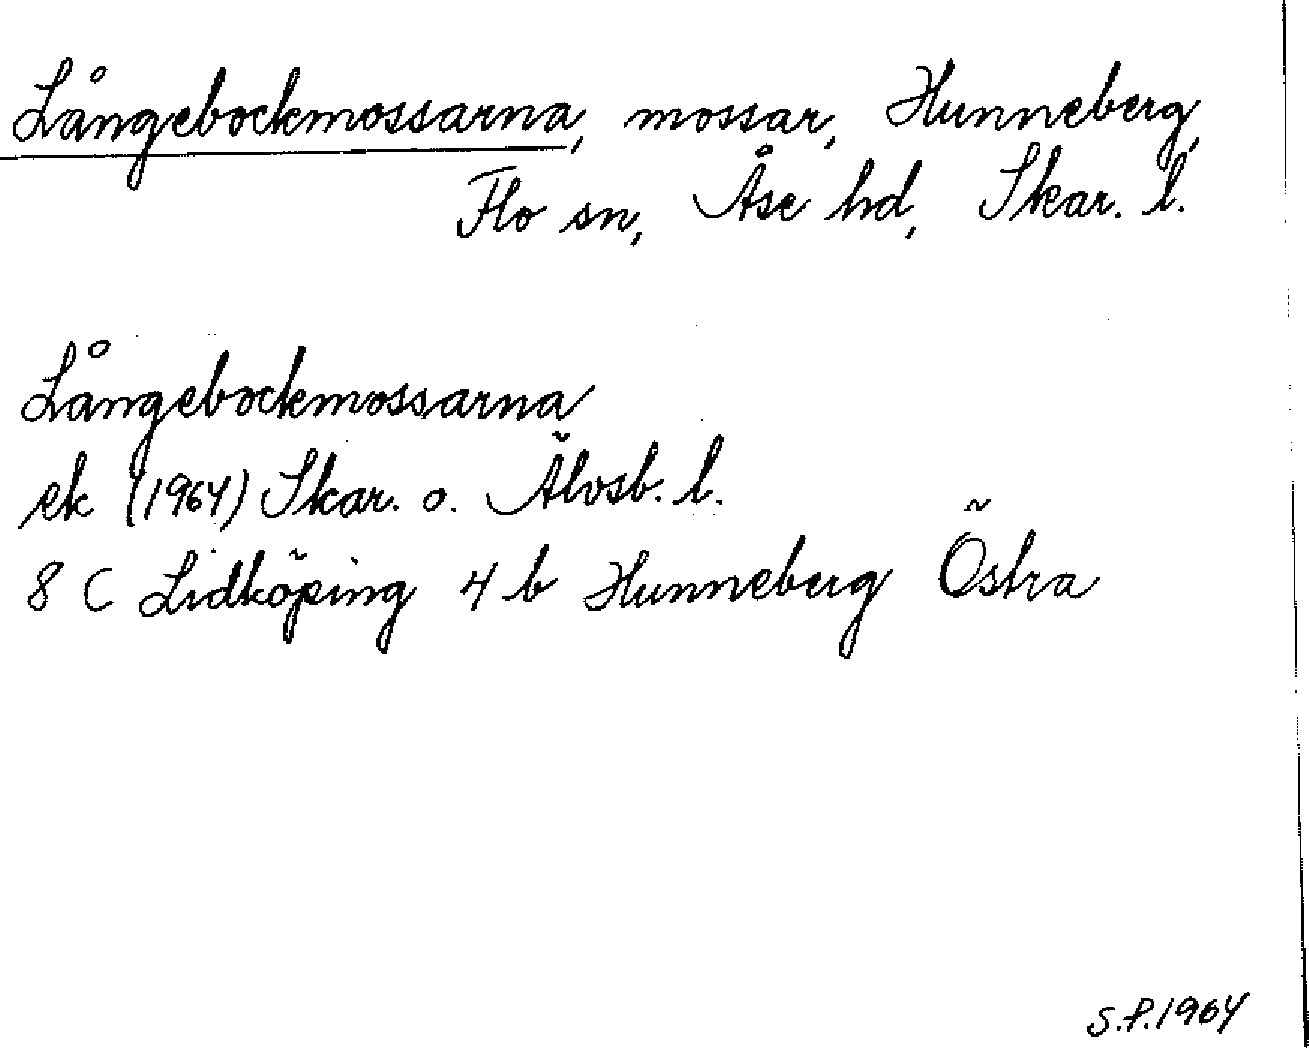 Långebockmossarna, mossar, Hunneberg,
Flo sn, Åse hd, Skar. l.
Långebockmossarna
ek (1964) Skar. o. Älvsb. l.
8 C Lidköping 4 b Hunneberg Östra
S.P. 1964